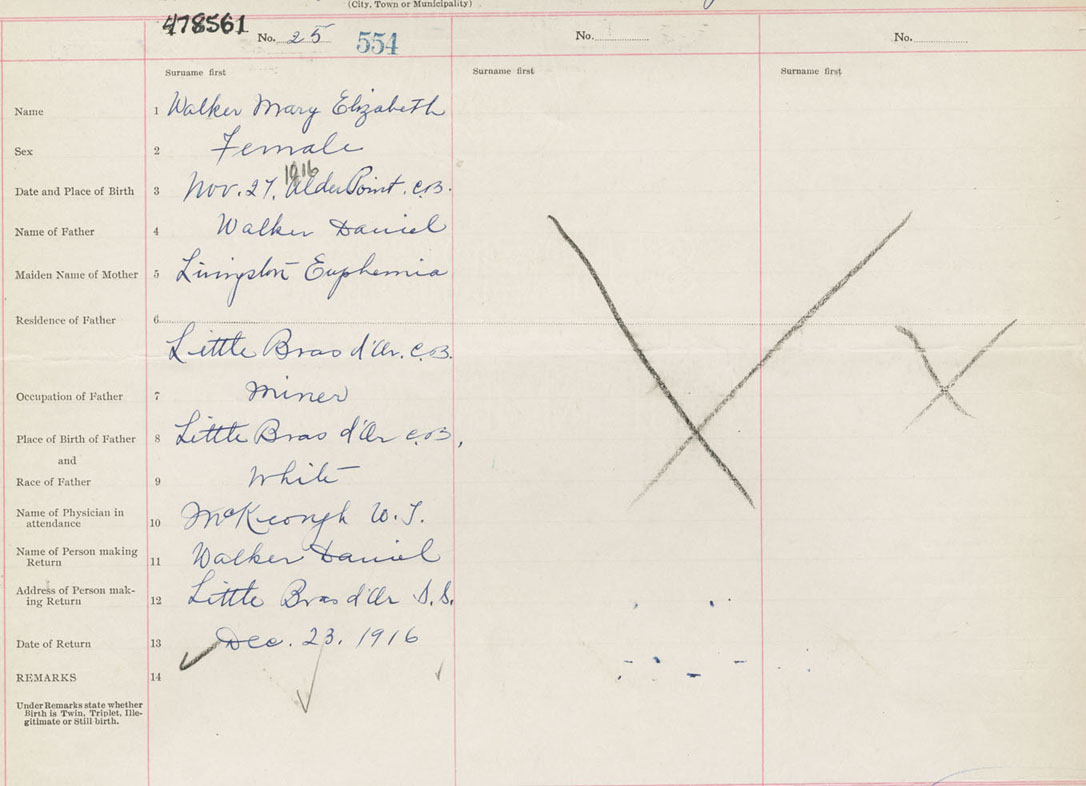 (City, Town or Municipality)
478561
No. 25 554 No. No.
Surname first Surname first Surname first
Name 1 Walker Mary Elizabeth
Sex 2 Female
1916
Date and Place of Birth 3 Nov. 27. Alder Point. C.B.
Name of Father 4 Walker Daniel
Maiden Name of Mother 5 Livingston Euphemia
Residence of Father 6
Little Bras d'Or. C.B.
Occupation of Father 7 Miner
Place of Birth of Father 8 Little Bras d'Or C.B,
and
Race of Father 9 White
Name of Physician in
attendance 10 McKeough W. J.
Name of Person making
Return 11 Walker Daniel
Address of Person mak-
ing Return 12 Little Bras d'Or S.S.
Date of Return 13 Dec. 23. 1916
REMARKS 14
Under Remarks state whether
Birth is Twin, Triplet, Ille-
gitimate or Still birth.